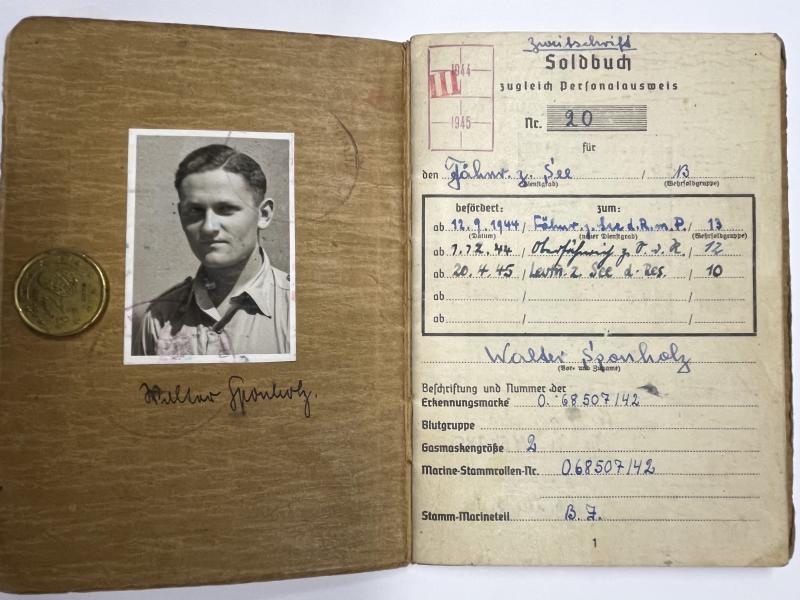 Walter Sponholz.
Zweitschrift
Soldbuch
zugleich Personalausweis
1944
III
1945
Nr. 20
für
den Fähnr. z. See / B
(Dienstgrad) (Wehrsoldgruppe)
befördert: zum:
ab 12.9.1944 / Fähnr. z. See d. R. m. P. / 13
(Datum) (neuer Dienstgrad) (Wehrsoldgruppe)
ab 1.12.44 / Oberfähnrich z. S. d. R. / 12
ab 20.4.45 / Leutn. z. See d. Res. / 10
ab / /
ab / /
Walter Sponholz
(Vor- und Zuname)
Beschriftung und Nummer der
Erkennungsmarke O. 68507/42
Blutgruppe
Gasmaskengröße 2
Marine-Stammrollen-Nr. O68507/42
Stamm-Marineteil B. J.
1